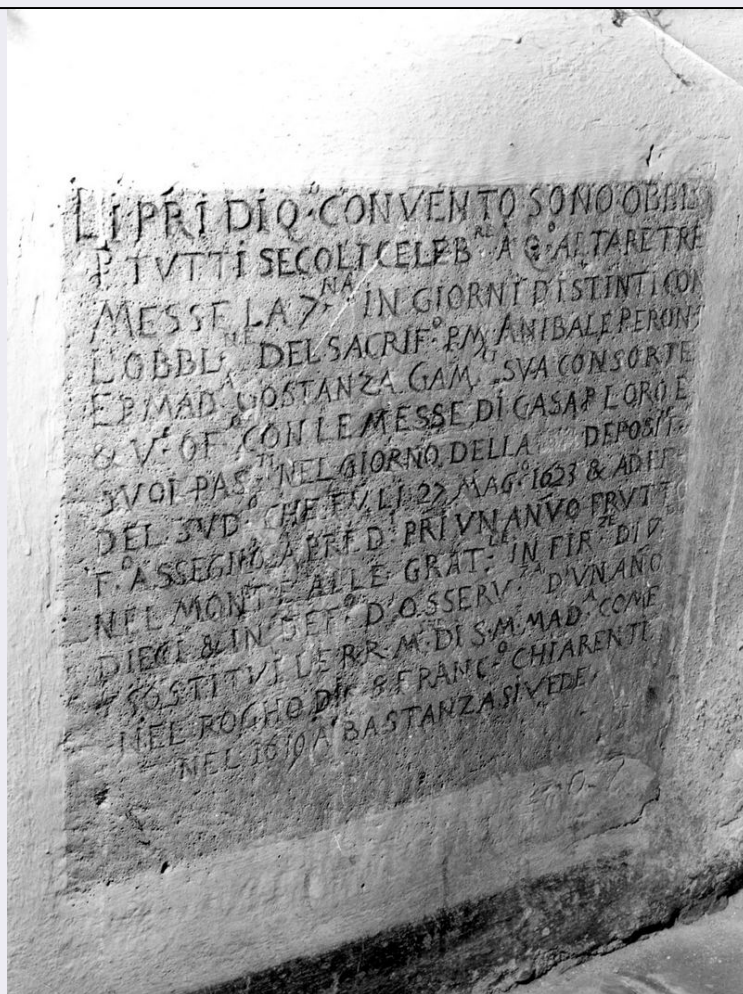 LI·PRĪ DI Q·º CONVENTO SONO OBBL
P TVTTI SECOLI CELEB·RE A Q·º ALTARE TRE
MESSE LA 7·NA IN GIORNI DISTINTI CON
L'OBBL·NE DEL SACRIF·º P M. ANIBALE PERON
E P MAD·A COSTANZA GAM· SVA CONSORTE
& V· OF·º CON LE MESSE DI CASA P LORO E
SVOI PAS·TI NEL GIORNO DELLA DEPOSIT·NE
DEL SVD·º CHE FV LI 27 MAG·º 1623 & AD
ASSEGNO A PRED·I PRI VN ANVO FRVTTO
NEL MONTE ALLE GRAT· IN FIR·ZE DI V
DIECI & IN DEF· D'OSSERV·ZA D'VN AÑO
SOSTITVI LE R.R.M. DI S.M. MAD·A COME
NEL ROGHO DI S FRANC·º CHIARENTI
NEL 1619 A BASTANZA SI VEDE.